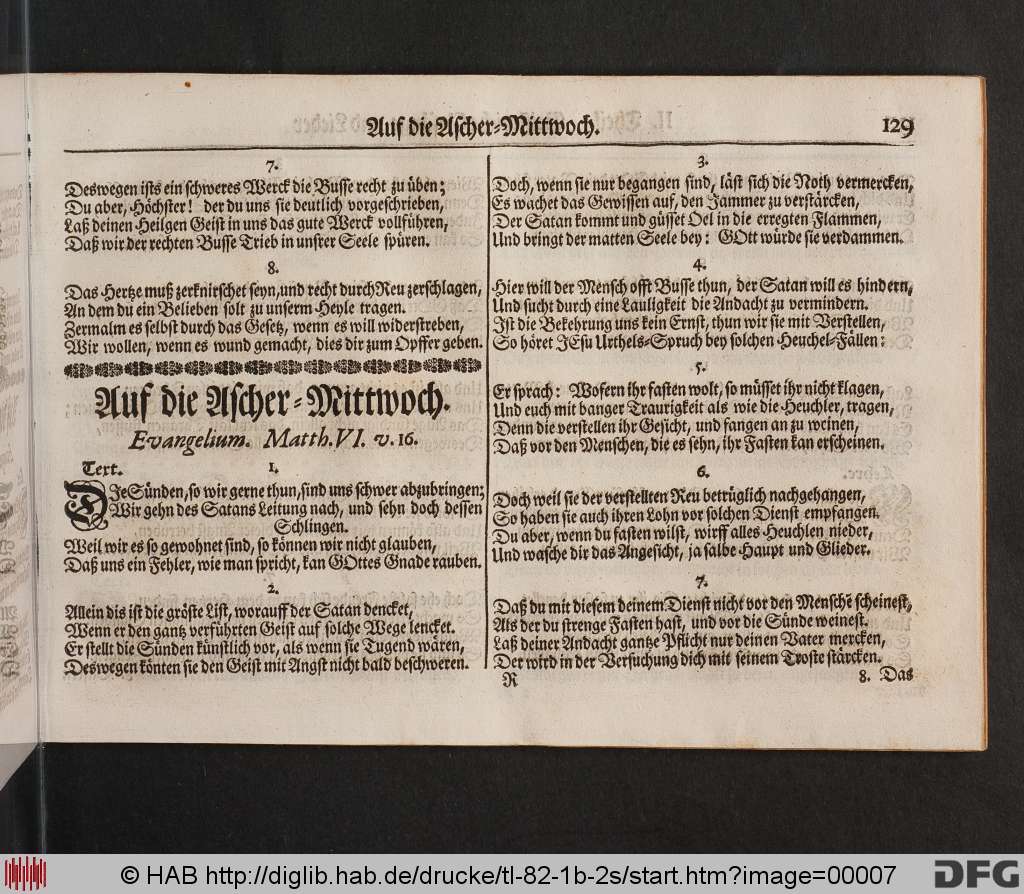 Auf die Ascher-Mittwoch. 129
7.
Deswegen ists ein schweres Werck die Busse recht zu üben;
Du aber, Höchster! der du uns sie deutlich vorgeschrieben,
Laß deinen Heilgen Geist in uns das gute Werck vollführen,
Daß wir der rechten Busse Trieb in unsrer Seele spüren.
8.
Das Hertze muß zerknirschet seyn, und recht durch Reu zerschlagen,
An dem du ein Belieben solt zu unserm Heyle tragen.
Zermalm es selbst durch das Gesetz, wenn es will widerstreben,
Wir wollen, wenn es wund gemacht, dies dir zum Opffer geben.
Auf die Ascher-Mittwoch.
Evangelium. Matth. VI. v. 16.
Text. 1.
DIe Sünden, so wir gerne thun, sind uns schwer abzubringen;
Wir gehn des Satans Leitung nach, und sehn doch dessen
Schlingen.
Weil wir es so gewohnet sind, so können wir nicht glauben,
Daß uns ein Fehler, wie man spricht, kan GOttes Gnade rauben.
2.
Allein dis ist die gröste List, worauff der Satan dencket,
Wenn er den gantz verführten Geist auf solche Wege lencket.
Er stellt die Sünden künstlich vor, als wenn sie Tugend wären,
Deswegen könten sie den Geist mit Angst nicht bald beschweren.
3.
Doch, wenn sie nur begangen sind, läst sich die Noth vermercken,
Es wachet das Gewissen auf, den Jammer zu verstärcken,
Der Satan kommt und güsset Oel in die erregten Flammen,
Und bringt der matten Seele bey: GOtt würde sie verdammen.
4.
Hier will der Mensch offt Busse thun, der Satan will es hindern,
Und sucht durch eine Lauligkeit die Andacht zu vermindern.
Ist die Bekehrung uns kein Ernst, thun wir sie mit Verstellen,
So höret JEsu Urthels-Spruch bey solchen Heuchel-Fällen:
5.
Er sprach: Wofern ihr fasten wolt, so müsset ihr nicht klagen,
Und euch mit banger Traurigkeit als wie die Heuchler, tragen,
Denn die verstellen ihr Gesicht, und fangen an zu weinen,
Daß vor den Menschen, die es sehn, ihr Fasten kan erscheinen.
6.
Doch weil sie der verstellten Reu betrüglich nachgehangen,
So haben sie auch ihren Lohn vor solchen Dienst empfangen.
Du aber, wenn du fasten wilst, wirff alles Heuchlen nieder,
Und wasche dir das Angesicht, ja salbe Haupt und Glieder.
7.
Daß du mit diesem deinem Dienst nicht vor den Menschē scheinest,
Als der du strenge Fasten hast, und vor die Sünde weinest.
Laß deiner Andacht gantze Pflicht nur deinen Vater mercken,
Der wird in der Versuchung dich mit seinem Troste stärcken.
R 8. Das
© HAB http://diglib.hab.de/drucke/tl-82-1b-2s/start.htm?image=00007
DFG